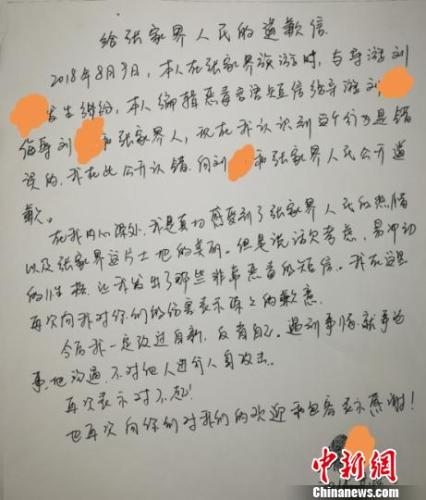 给张家界人民的道歉信
2018年8月3日，本人在张家界旅游时，与导游刘
发生纠纷，本人编辑恶毒言语短信给导游刘
侮辱刘 和张家界人，现在我认识到这个行为是错
误的，我在此公开认错，向刘 和张家界人民公开道
歉。
在我内心深处，我是真切感受到了张家界人民的热情
以及张家界这片土地的美丽。但是说话欠考虑，易冲动
的性格，让我发出了那些非常恶毒的短信。我在这里
再次向我对你们的伤害表示深深的歉意
今后我一定改过自新，反省自己。遇到事情就事论
事地沟通，不对他人进行人身攻击。
再次表示对不起！
也再次向你们对我们的欢迎和包容表示感谢！
中新网
Chinanews.com